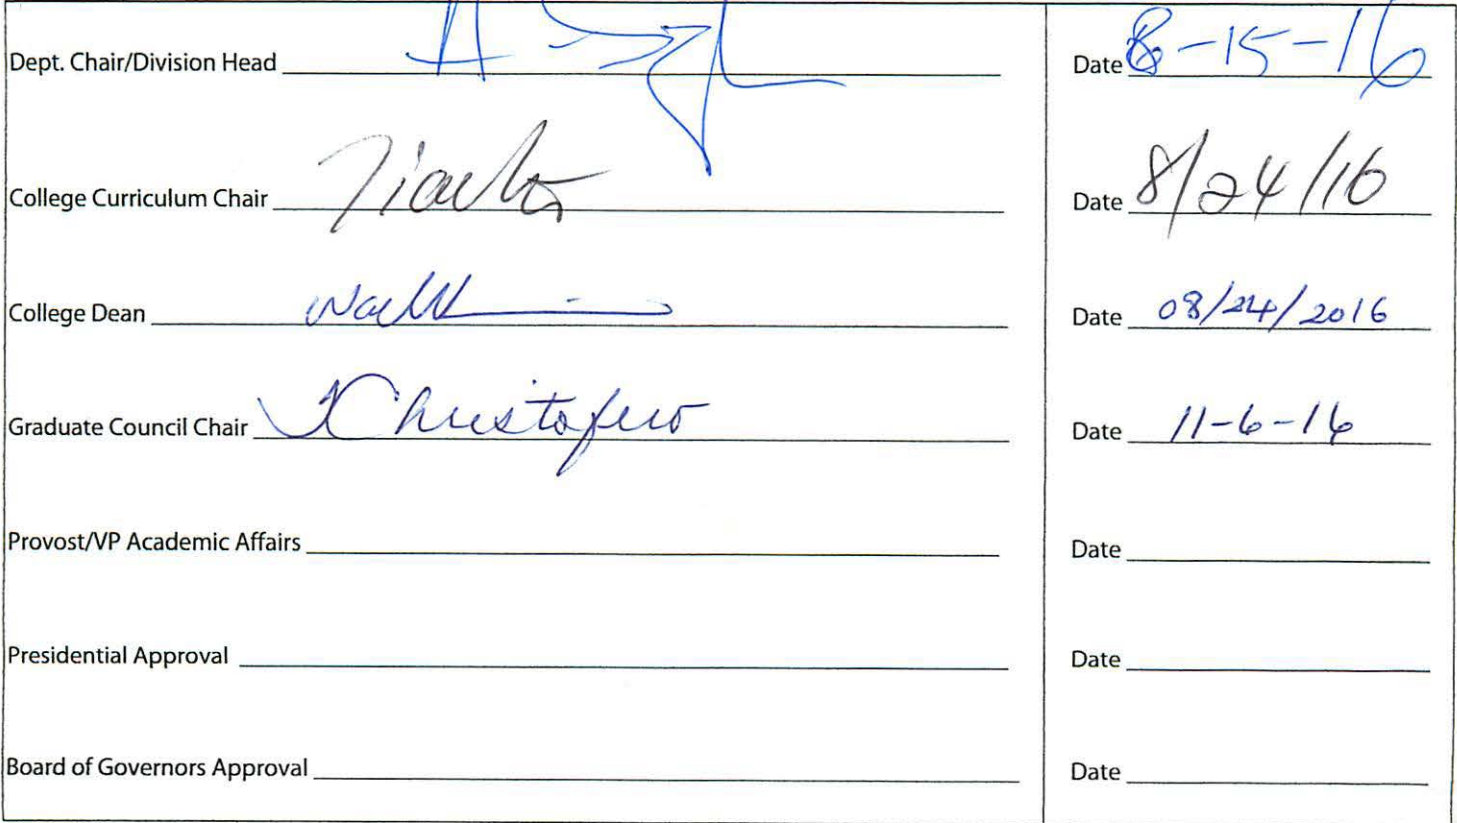 Dept. Chair/Division Head Date 8-15-16
College Curriculum Chair Date 8/24/16
College Dean Date 08/24/2016
Graduate Council Chair Christofero Date 11-6-16
Provost/VP Academic Affairs Date
Presidential Approval Date
Board of Governors Approval Date